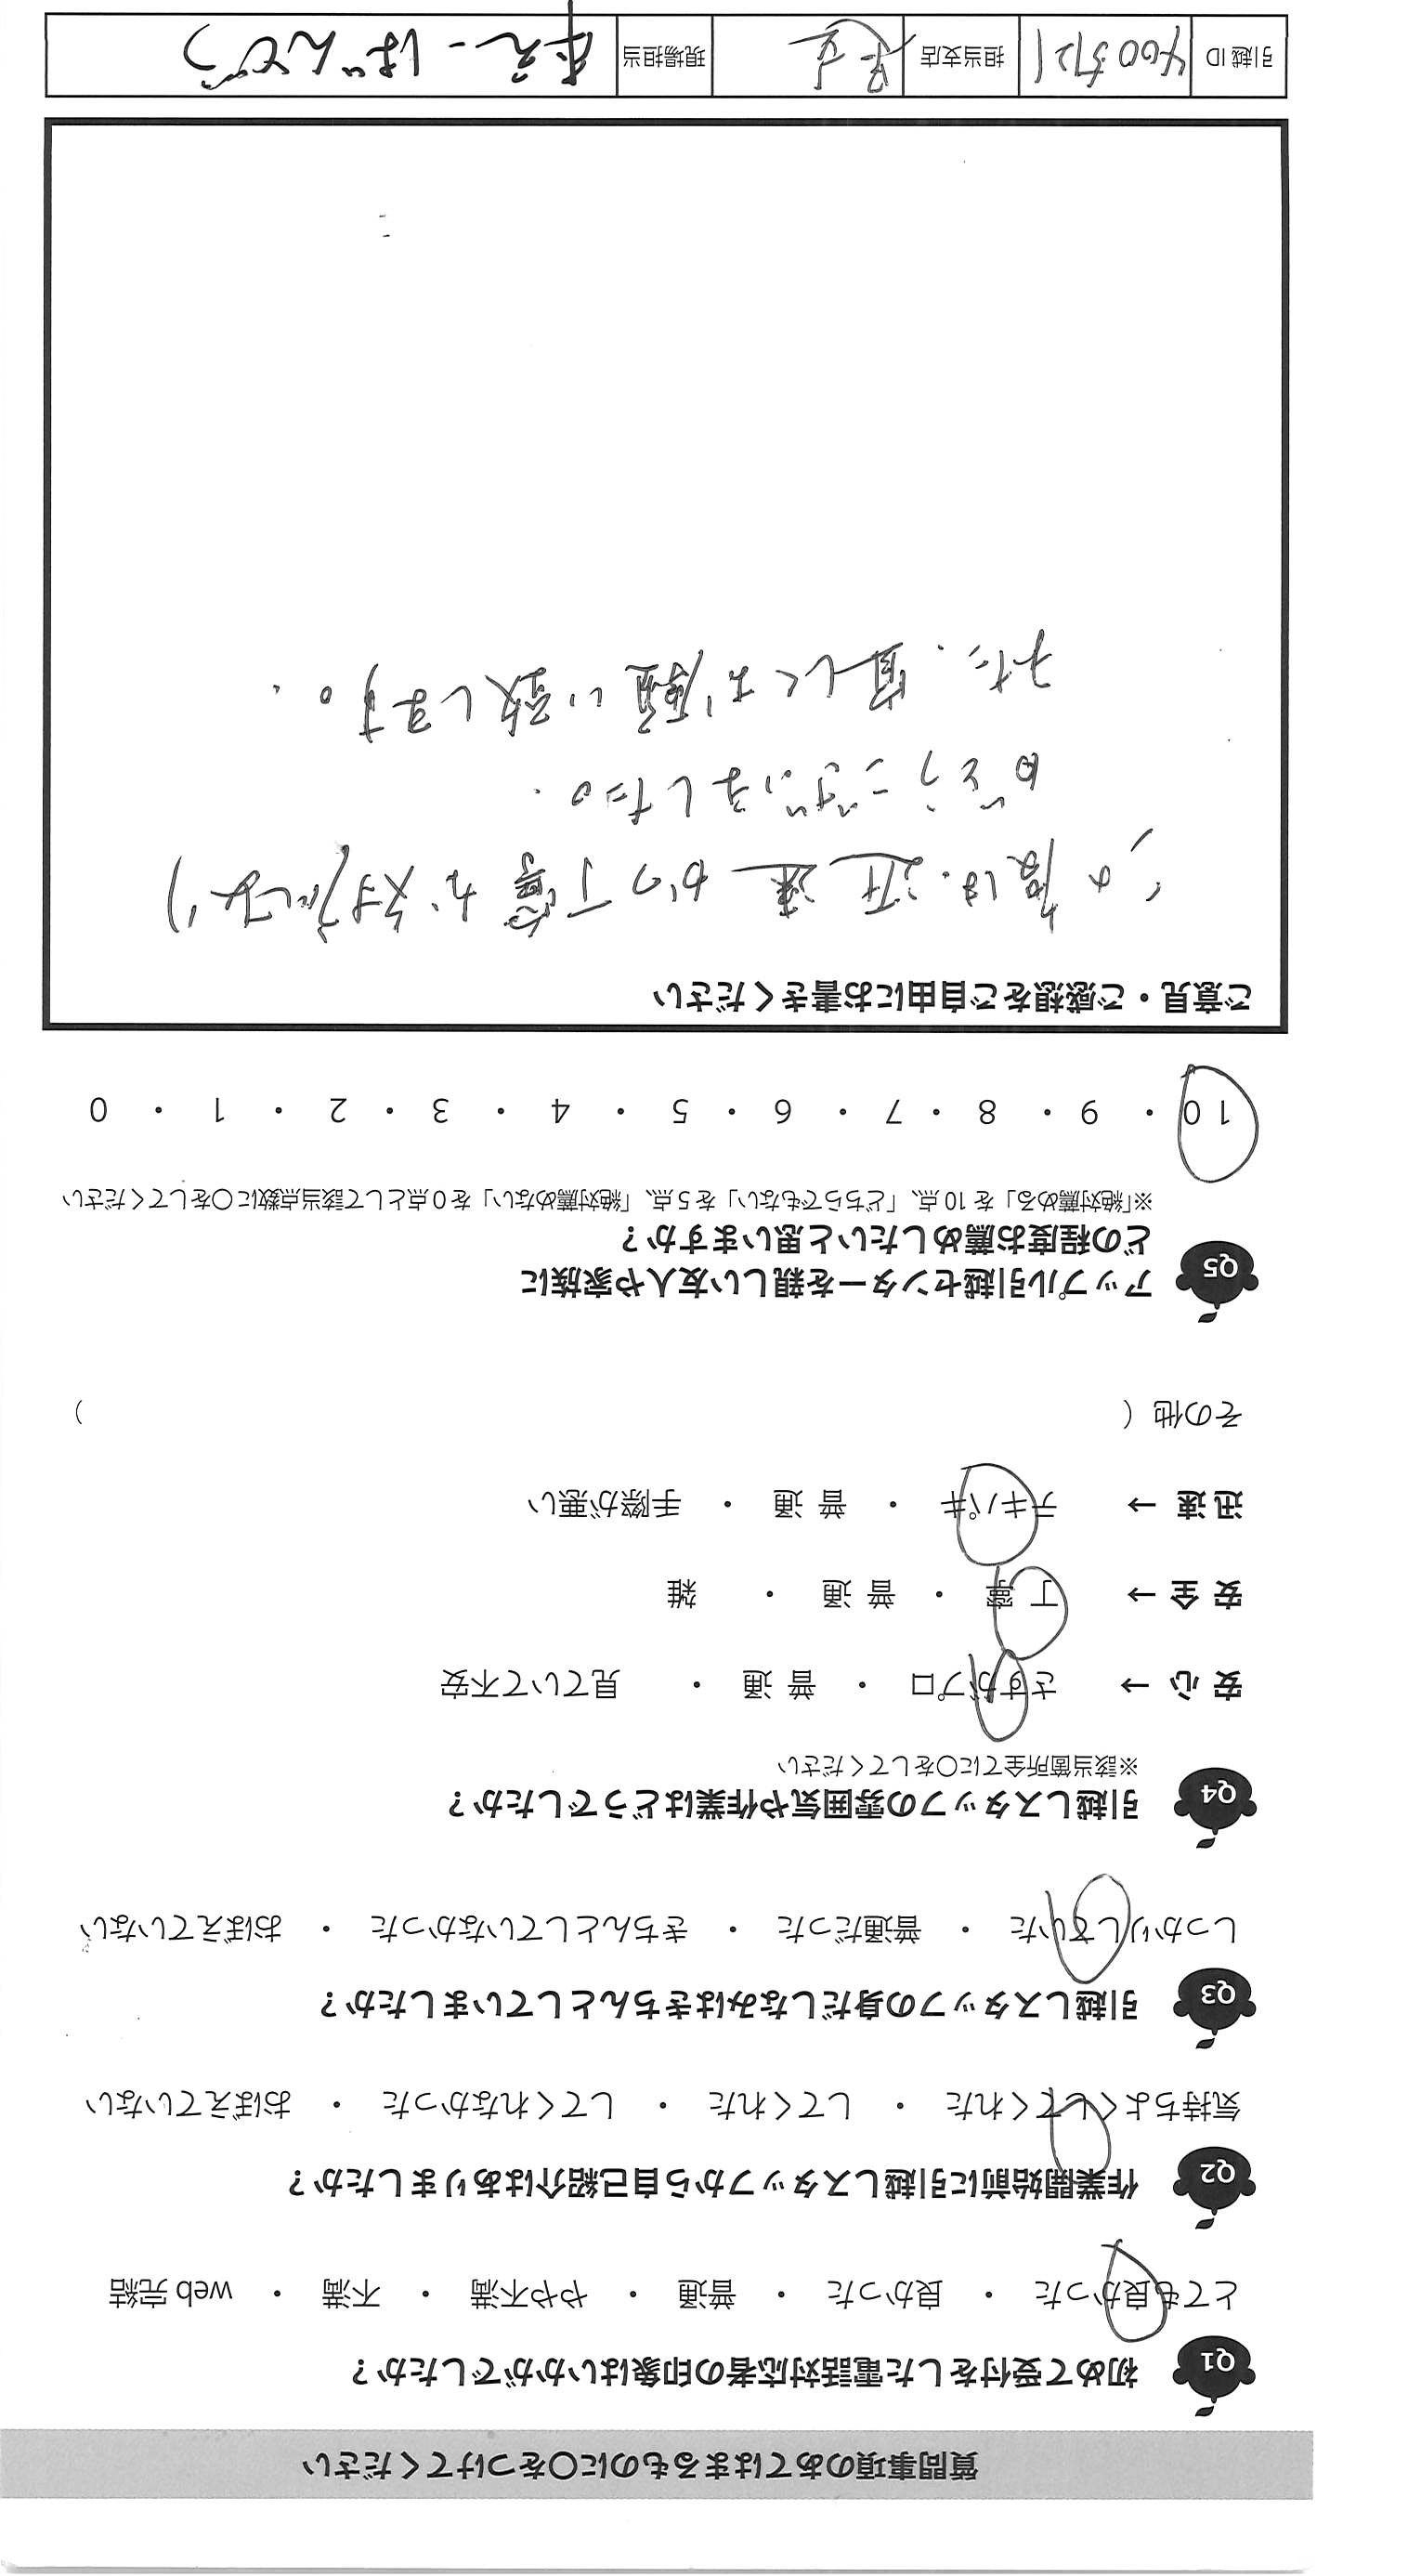 質問事項のあてはまるものに○をつけてください
Q1 初めて受付をした電話対応者の印象はいかがでしたか?
とても良かった ・ 良かった ・ 普通 ・ やや不満 ・ 不満 ・ web 完結
Q2 作業開始前に引越しスタッフから自己紹介はありましたか?
気持ちよくしてくれた ・ してくれた ・ してくれなかった ・ おぼえていない
Q3 引越しスタッフの身だしなみはきちんとしていましたか?
しっかりしていた ・ 普通だった ・ きちんとしていなかった ・ おぼえていない
Q4 引越しスタッフの雰囲気や作業はどうでしたか?
※該当箇所全てに○をしてください
安 心 → さすがプロ ・ 普 通 ・ 見ていて不安
安 全 → 丁 寧 ・ 普 通 ・ 雑
迅 速 → テキパキ ・ 普 通 ・ 手際が悪い
その他 ( )
Q5 アップル引越センターを親しい友人や家族に
どの程度お薦めしたいと思いますか?
※「絶対薦める」を 10 点、「どちらでもない」を 5 点、「絶対薦めない」を 0 点として該当点数に○をしてください
10 ・ 9 ・ 8 ・ 7 ・ 6 ・ 5 ・ 4 ・ 3 ・ 2 ・ 1 ・ 0
ご意見・ご感想をご自由にお書きください
この度は、迅速かつ丁寧な対応
ございました。
また、宜しくお願い致します。
引越 ID 担当支店 現場担当 ばんどう